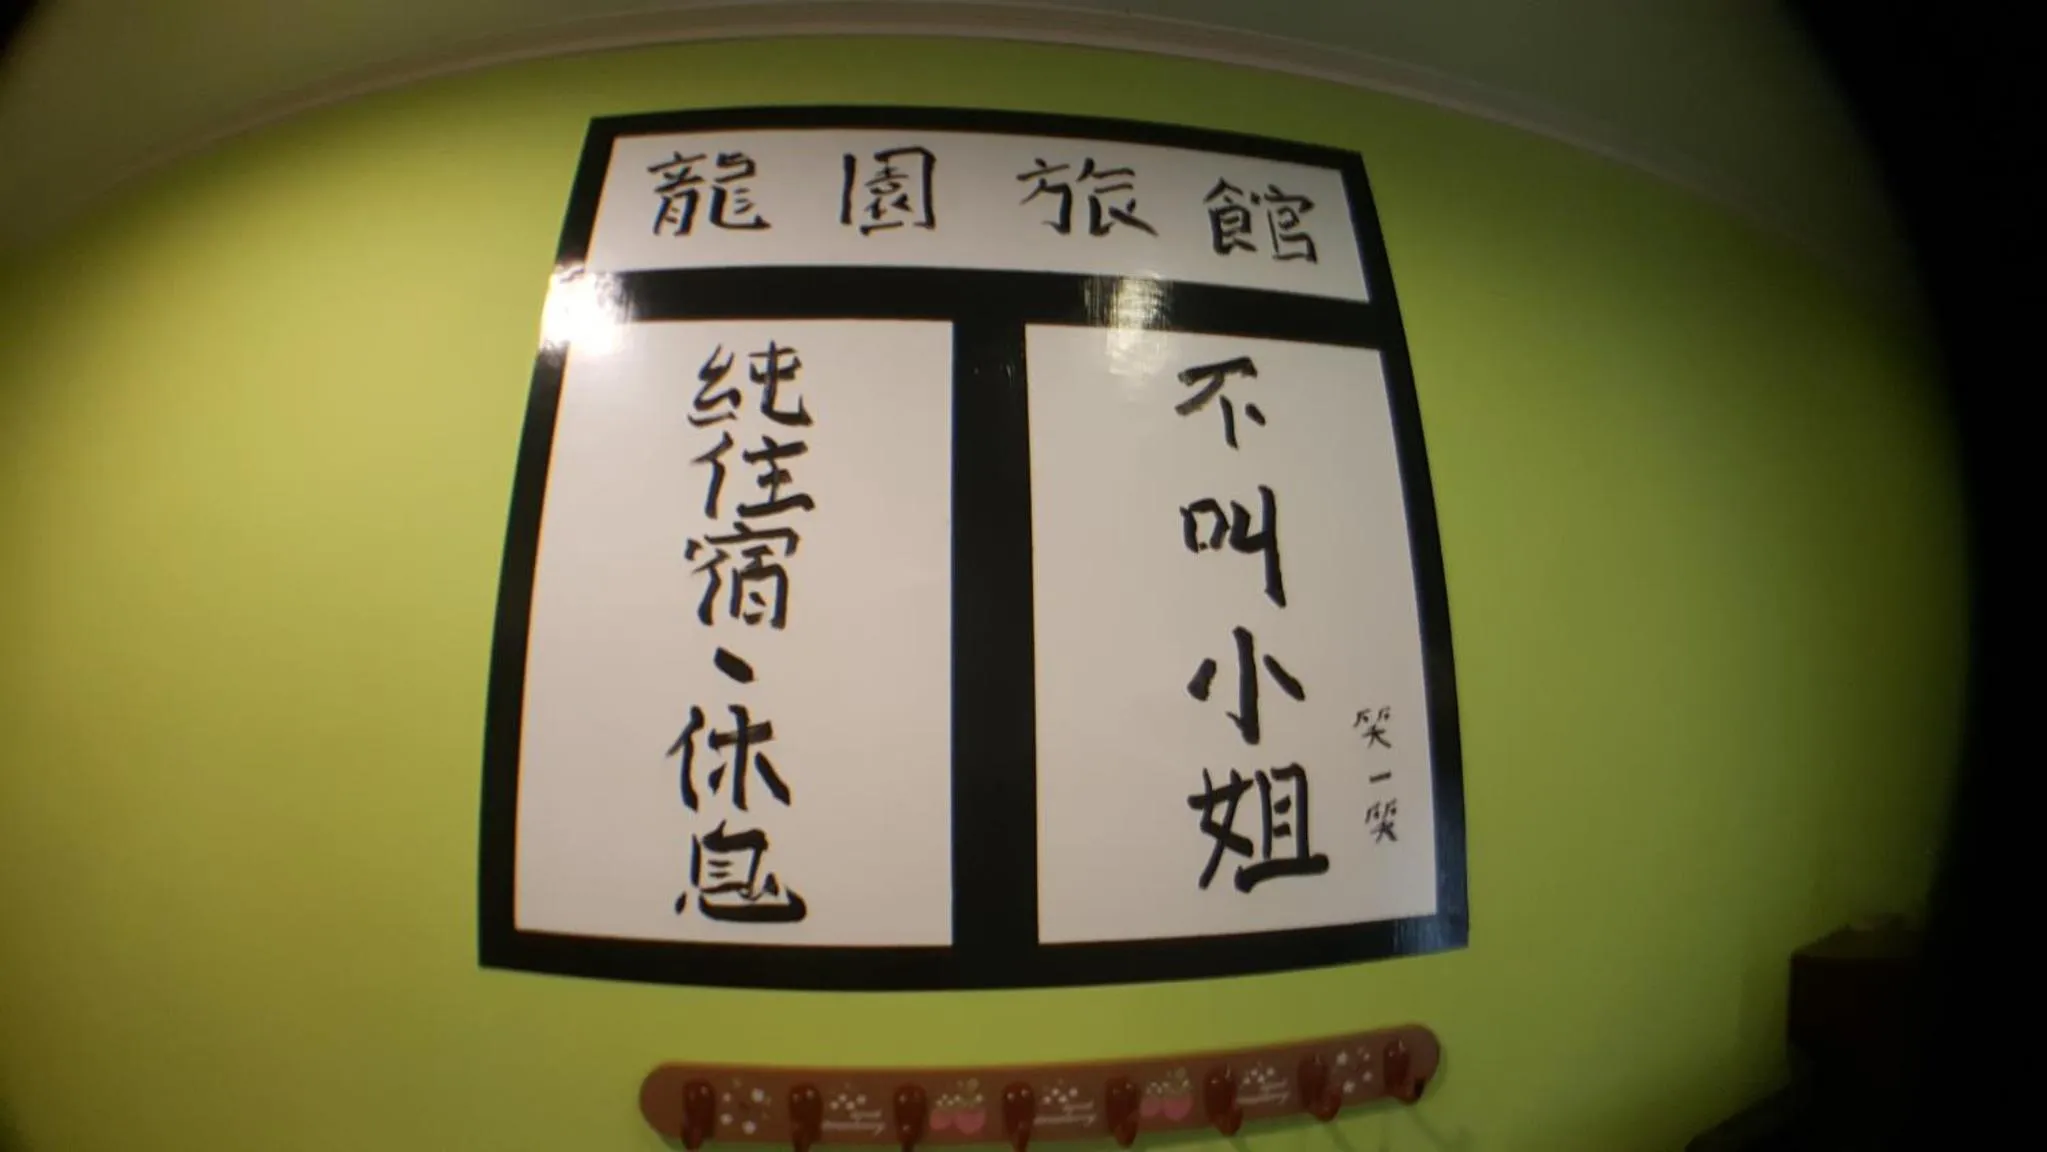 龍園旅館
不叫小姐
笑一笑
純住宿、休息